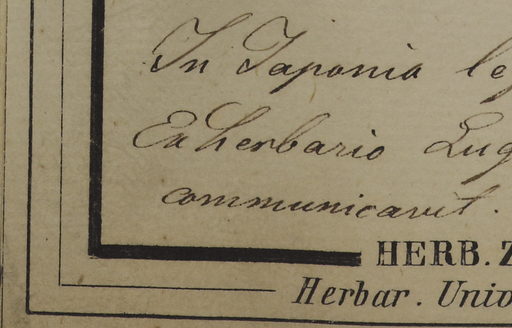 In Japonia leg
Ex herbario Lug
communicavit.
HERB. Z
Herbar. Univ